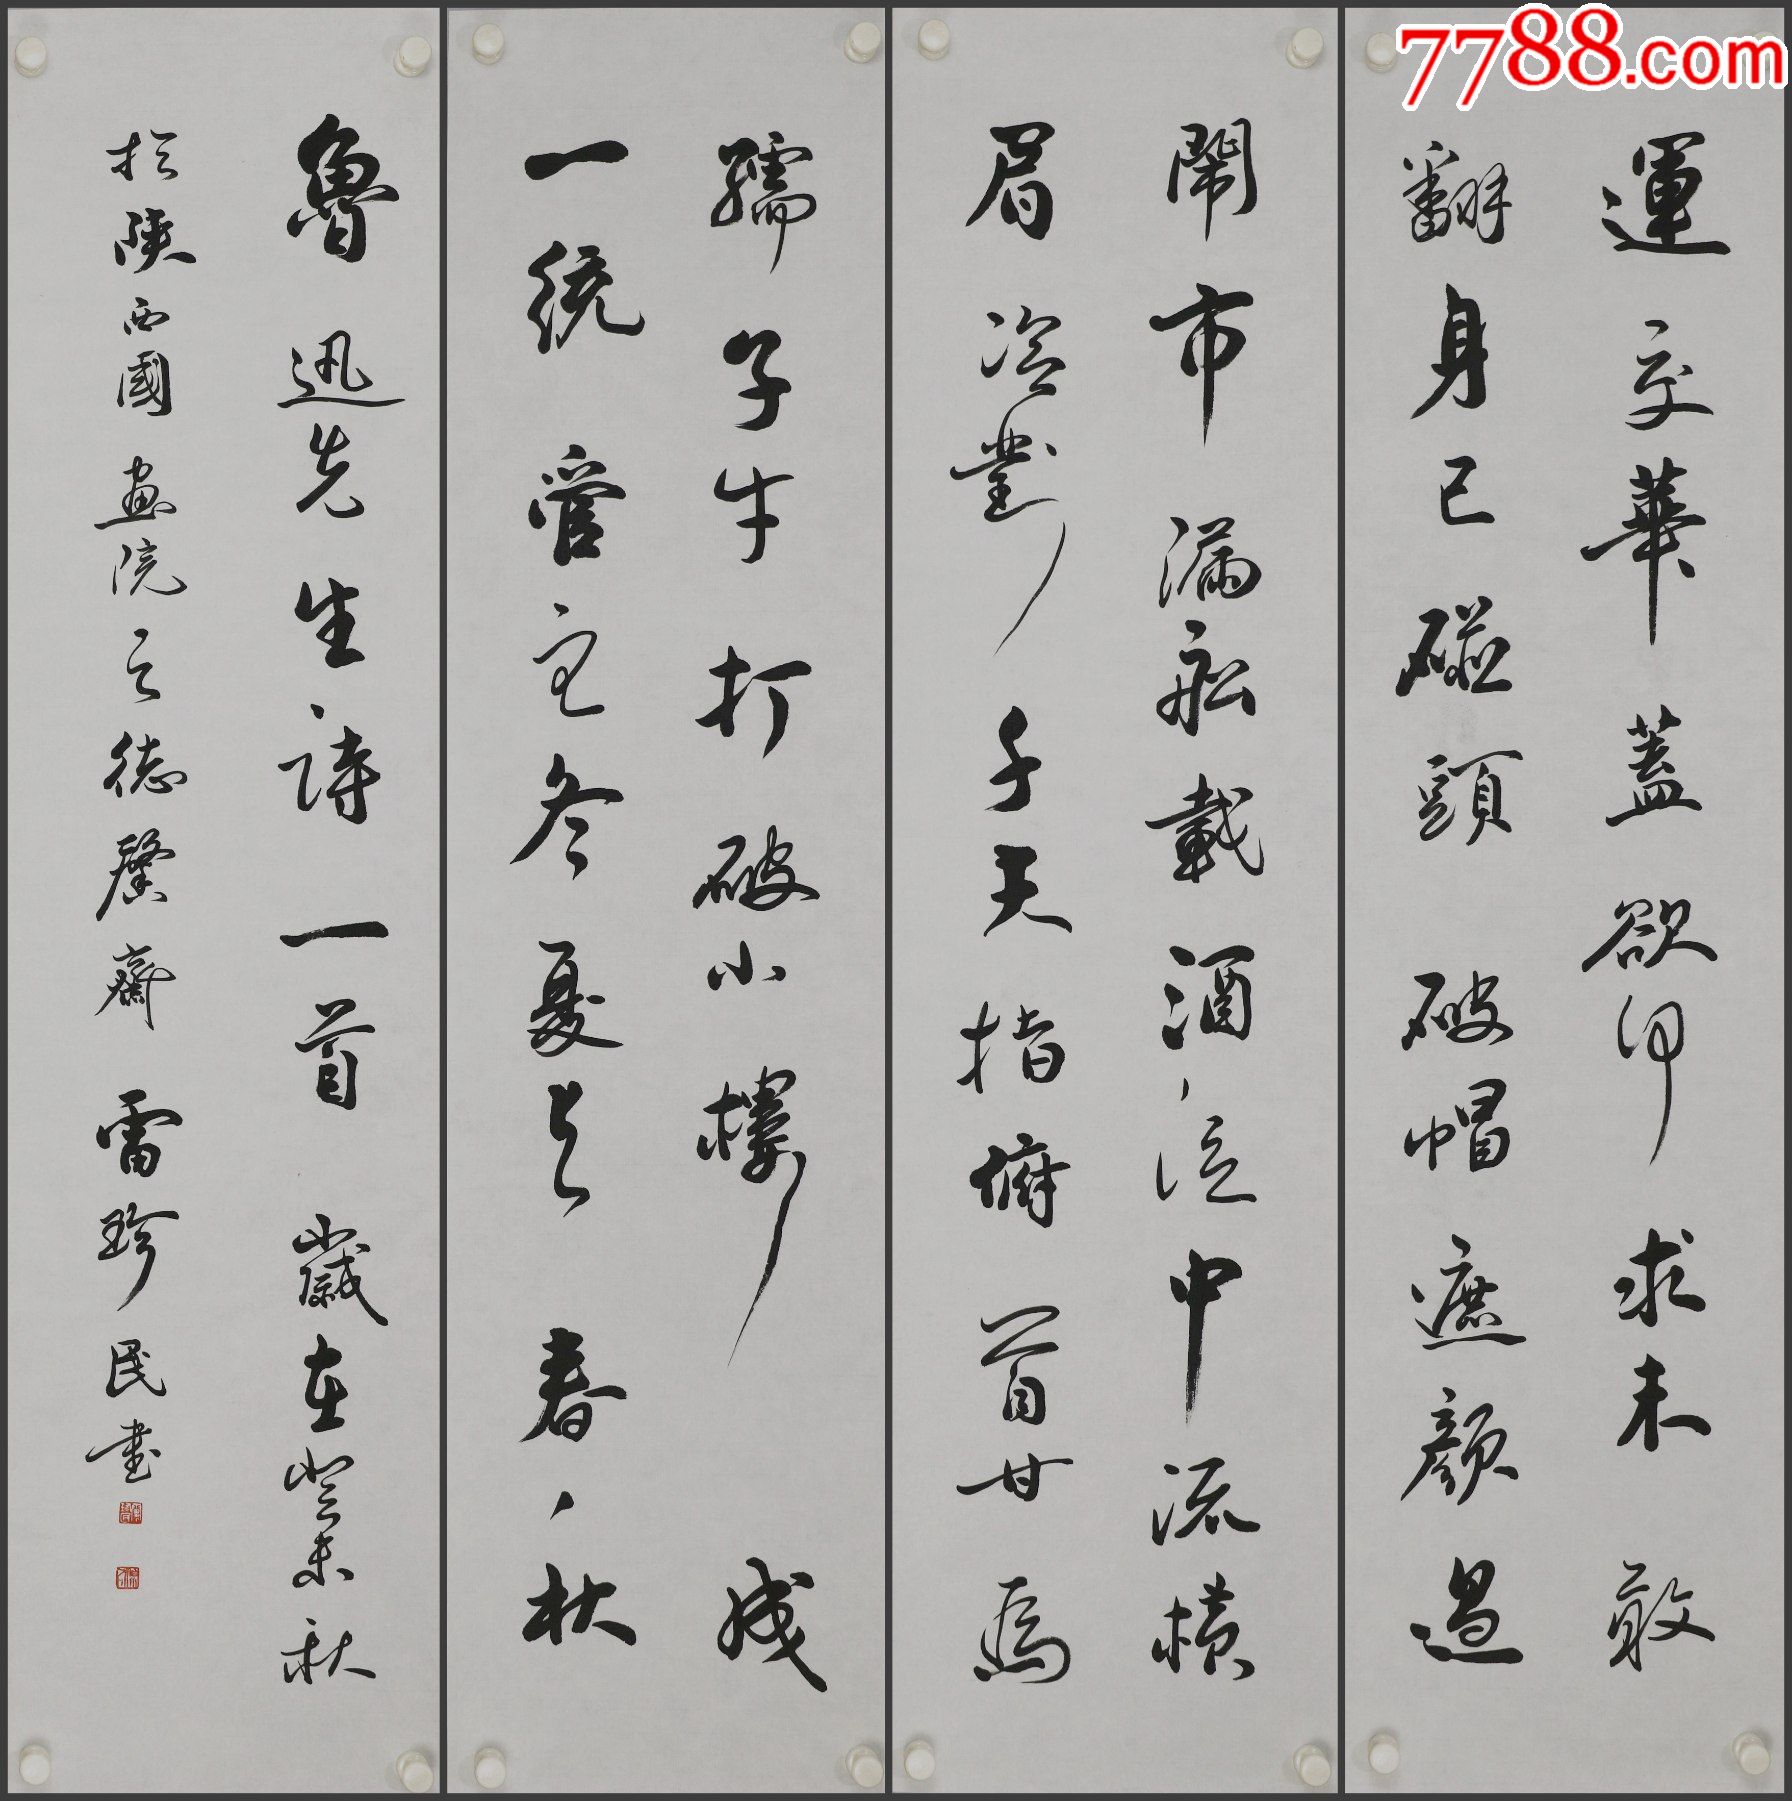 7788.com
運交華蓋欲何求未敢
翻身已碰頭破帽遮顏過
鬧市漏舩載酒泛中流橫
眉冷對千夫指俯首甘為
孺子牛打破小樓成
一統管它冬夏与春秋
魯迅先生詩一首歲在癸未秋
於陝西國畫院之德馨齋雷珍民書